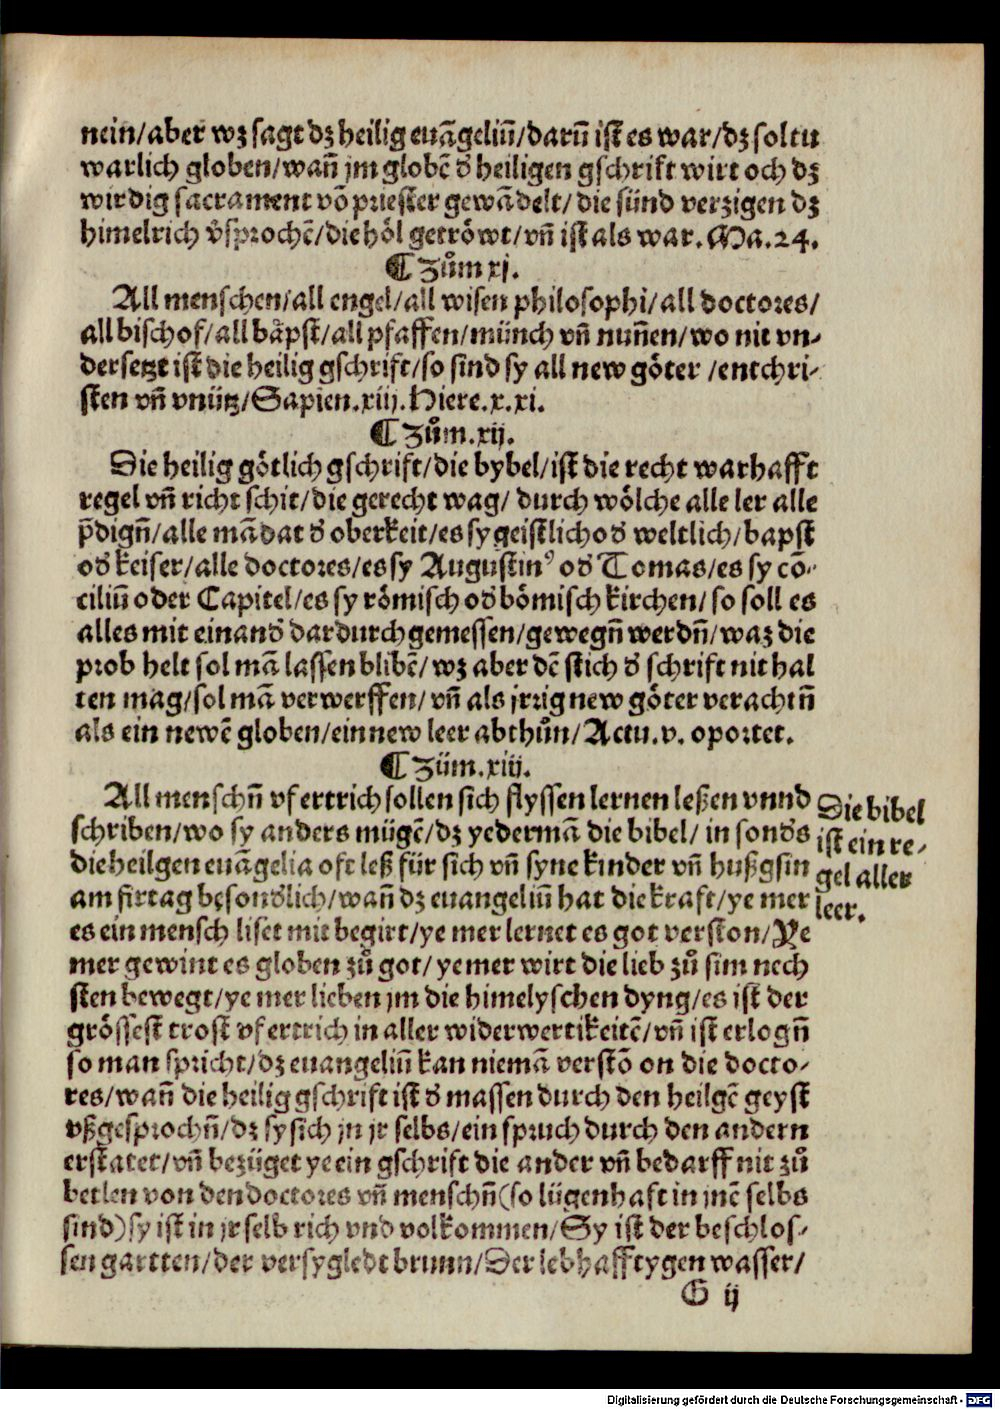 nein/aber wz sagt dz heilig euãgeliũ/darũ ist es war/dz soltu
warlich globen/wañ jm globẽ d̕ heiligen gschrift wirt och dz
wirdig sacrament võ priester gewãdelt/ die sünd verzigen dz
himelrich v̕sprochẽ/die höl getröwt/vñ ist als war. Ma.24.
¶ Zům xj.
All menschen/all engel/all wisen philosophi/all doctores/
all bischof/all bäpst/all pfaffen/münch vñ nuñen/wo nit vn-
dersetzt ist die heilig gschrift/so sind sy all new göter /entchri-
sten vñ vnütz/Sapien.xiij.Hiere.x.xi.
¶ Zům.xij.
Die heilig götlich gschrift/die bybel/ist die recht warhafft
regel vñ richt schit/die gerecht wag/ durch wölche alle ler alle
p̃digñ/alle mãdat d̕ oberkeit/es sy geistlich od̕ weltlich/bapst
od̕ keiser/alle doctores/es sy Augustinꝰ od̕ Tomas/es sy cõ-
ciliũ oder Capitel/es sy römisch od̕ bömisch kirchen/so soll es
alles mit einand̕ dardurch gemessen/gewegñ werdñ/waz die
prob helt sol mã lassen blibẽ/wz aber dẽ stich d̕ schrift nit hal
ten mag/sol mã verwerffen/vñ als jrrig new göter verachtñ
als ein newẽ globen/ein new leer abthůn/Actu.v. oportet.
¶ Züm.xiij.
All menschñ vf ertrich sollen sich flyssen lernen leßen vnnd
schriben/wo sy anders mügẽ/dz yedermã die bibel/ in sond̕s
die heilgen euãgelia oft leß für sich vñ syne kinder vñ hußgsin
am firtag besond̕lich/wañ dz euangeliũ hat die kraft/ye mer
es ein mensch liset mit begirt/ye mer lernet es got verston/Ye
mer gewint es globen zů got/ye mer wirt die lieb zů sim nech
sten bewegt/ye mer lieben jm die himelyschen dyng/es ist der
grössest trost vf ertrich in aller widerwertikeitẽ/vñ ist erlogñ
so man spricht/dz euangeliũ kan niemã verstõ on die docto-
res/wañ die heilig gschrift ist d̕ massen durch den heilgẽ geyst
vßgesprochñ/dz sy sich jn jr selbs/ein spruch durch den andern
erstatet/vñ bezüget ye ein gschrift die ander vñ bedarff nit zů
betlen von den doctores vñ menschñ(so lügenhaft in jnẽ selbs
sind)sy ist in jr selb rich vnd volkommen/Sy ist der beschlos-
sen gartten/der versygledt brunn/Der lebhafftygen wasser/
G ij
Die bibel
ist ein re-
gel aller
leer.
Digitalisierung gefördert durch die Deutsche Forschungsgemeinschaft - DFG